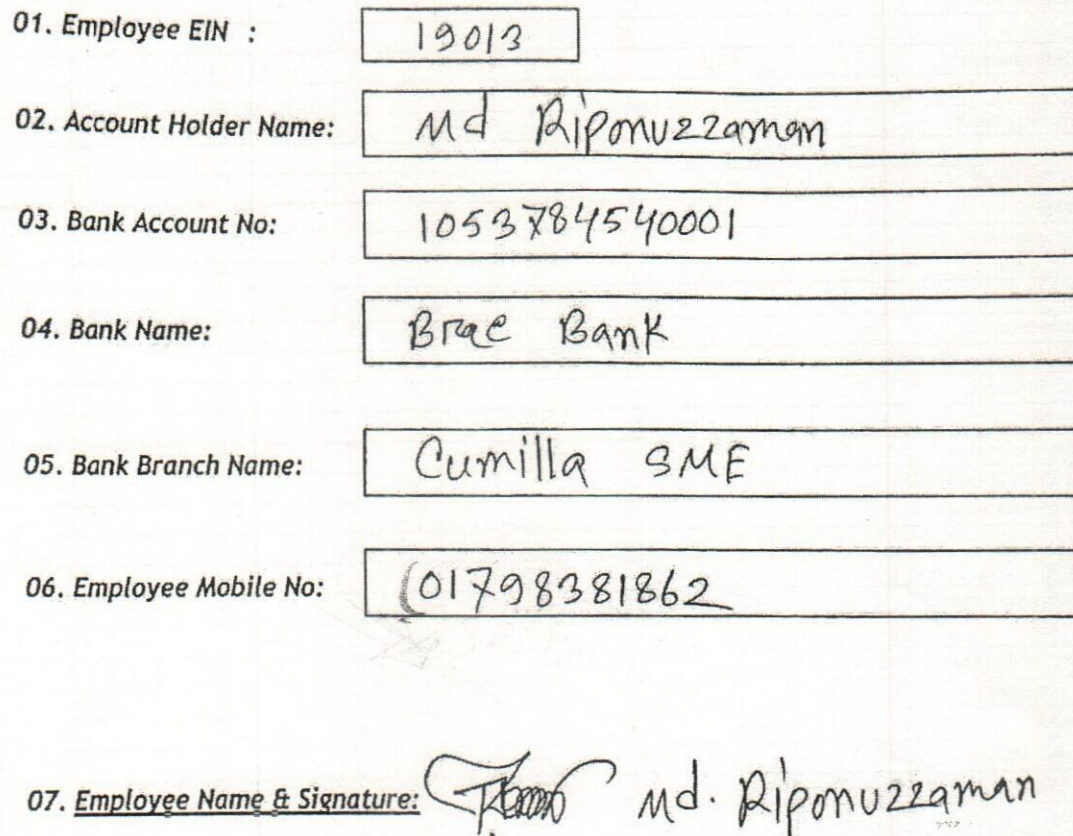 01. Employee EIN : 19013
02. Account Holder Name: Md Riponuzzaman
03. Bank Account No: 1053784540001
04. Bank Name: Brac Bank
05. Bank Branch Name: Cumilla SME
06. Employee Mobile No: 01798381862
07. Employee Name & Signature: Md. Riponuzzaman